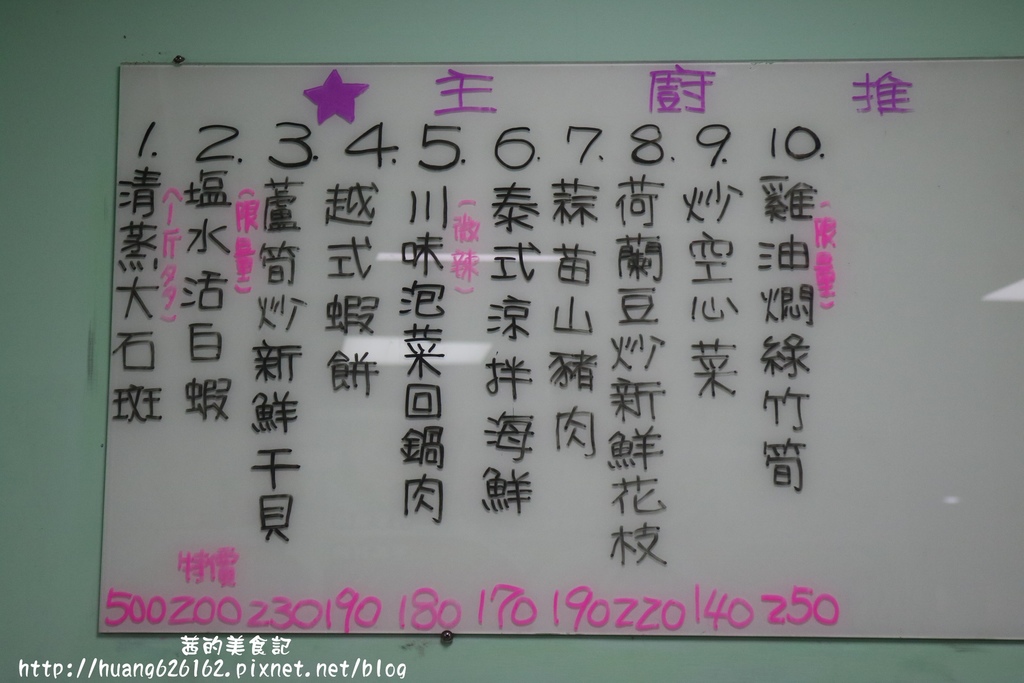 ★主廚推
1.清蒸大石斑
(一斤多)
500
2.塩水活白蝦
特價
200
3.蘆筍炒新鮮干貝
(限量)
230
4.越式蝦餅
190
5.川味泡菜回鍋肉
(微辣)
180
6.泰式涼拌海鮮
170
7.蒜苗山豬肉
190
8.荷蘭豆炒新鮮花枝
220
9.炒空心菜
140
10.雞油燜綠竹筍
(限量)
250
茜的美食記
http://huang626162.pixnet.net/blog